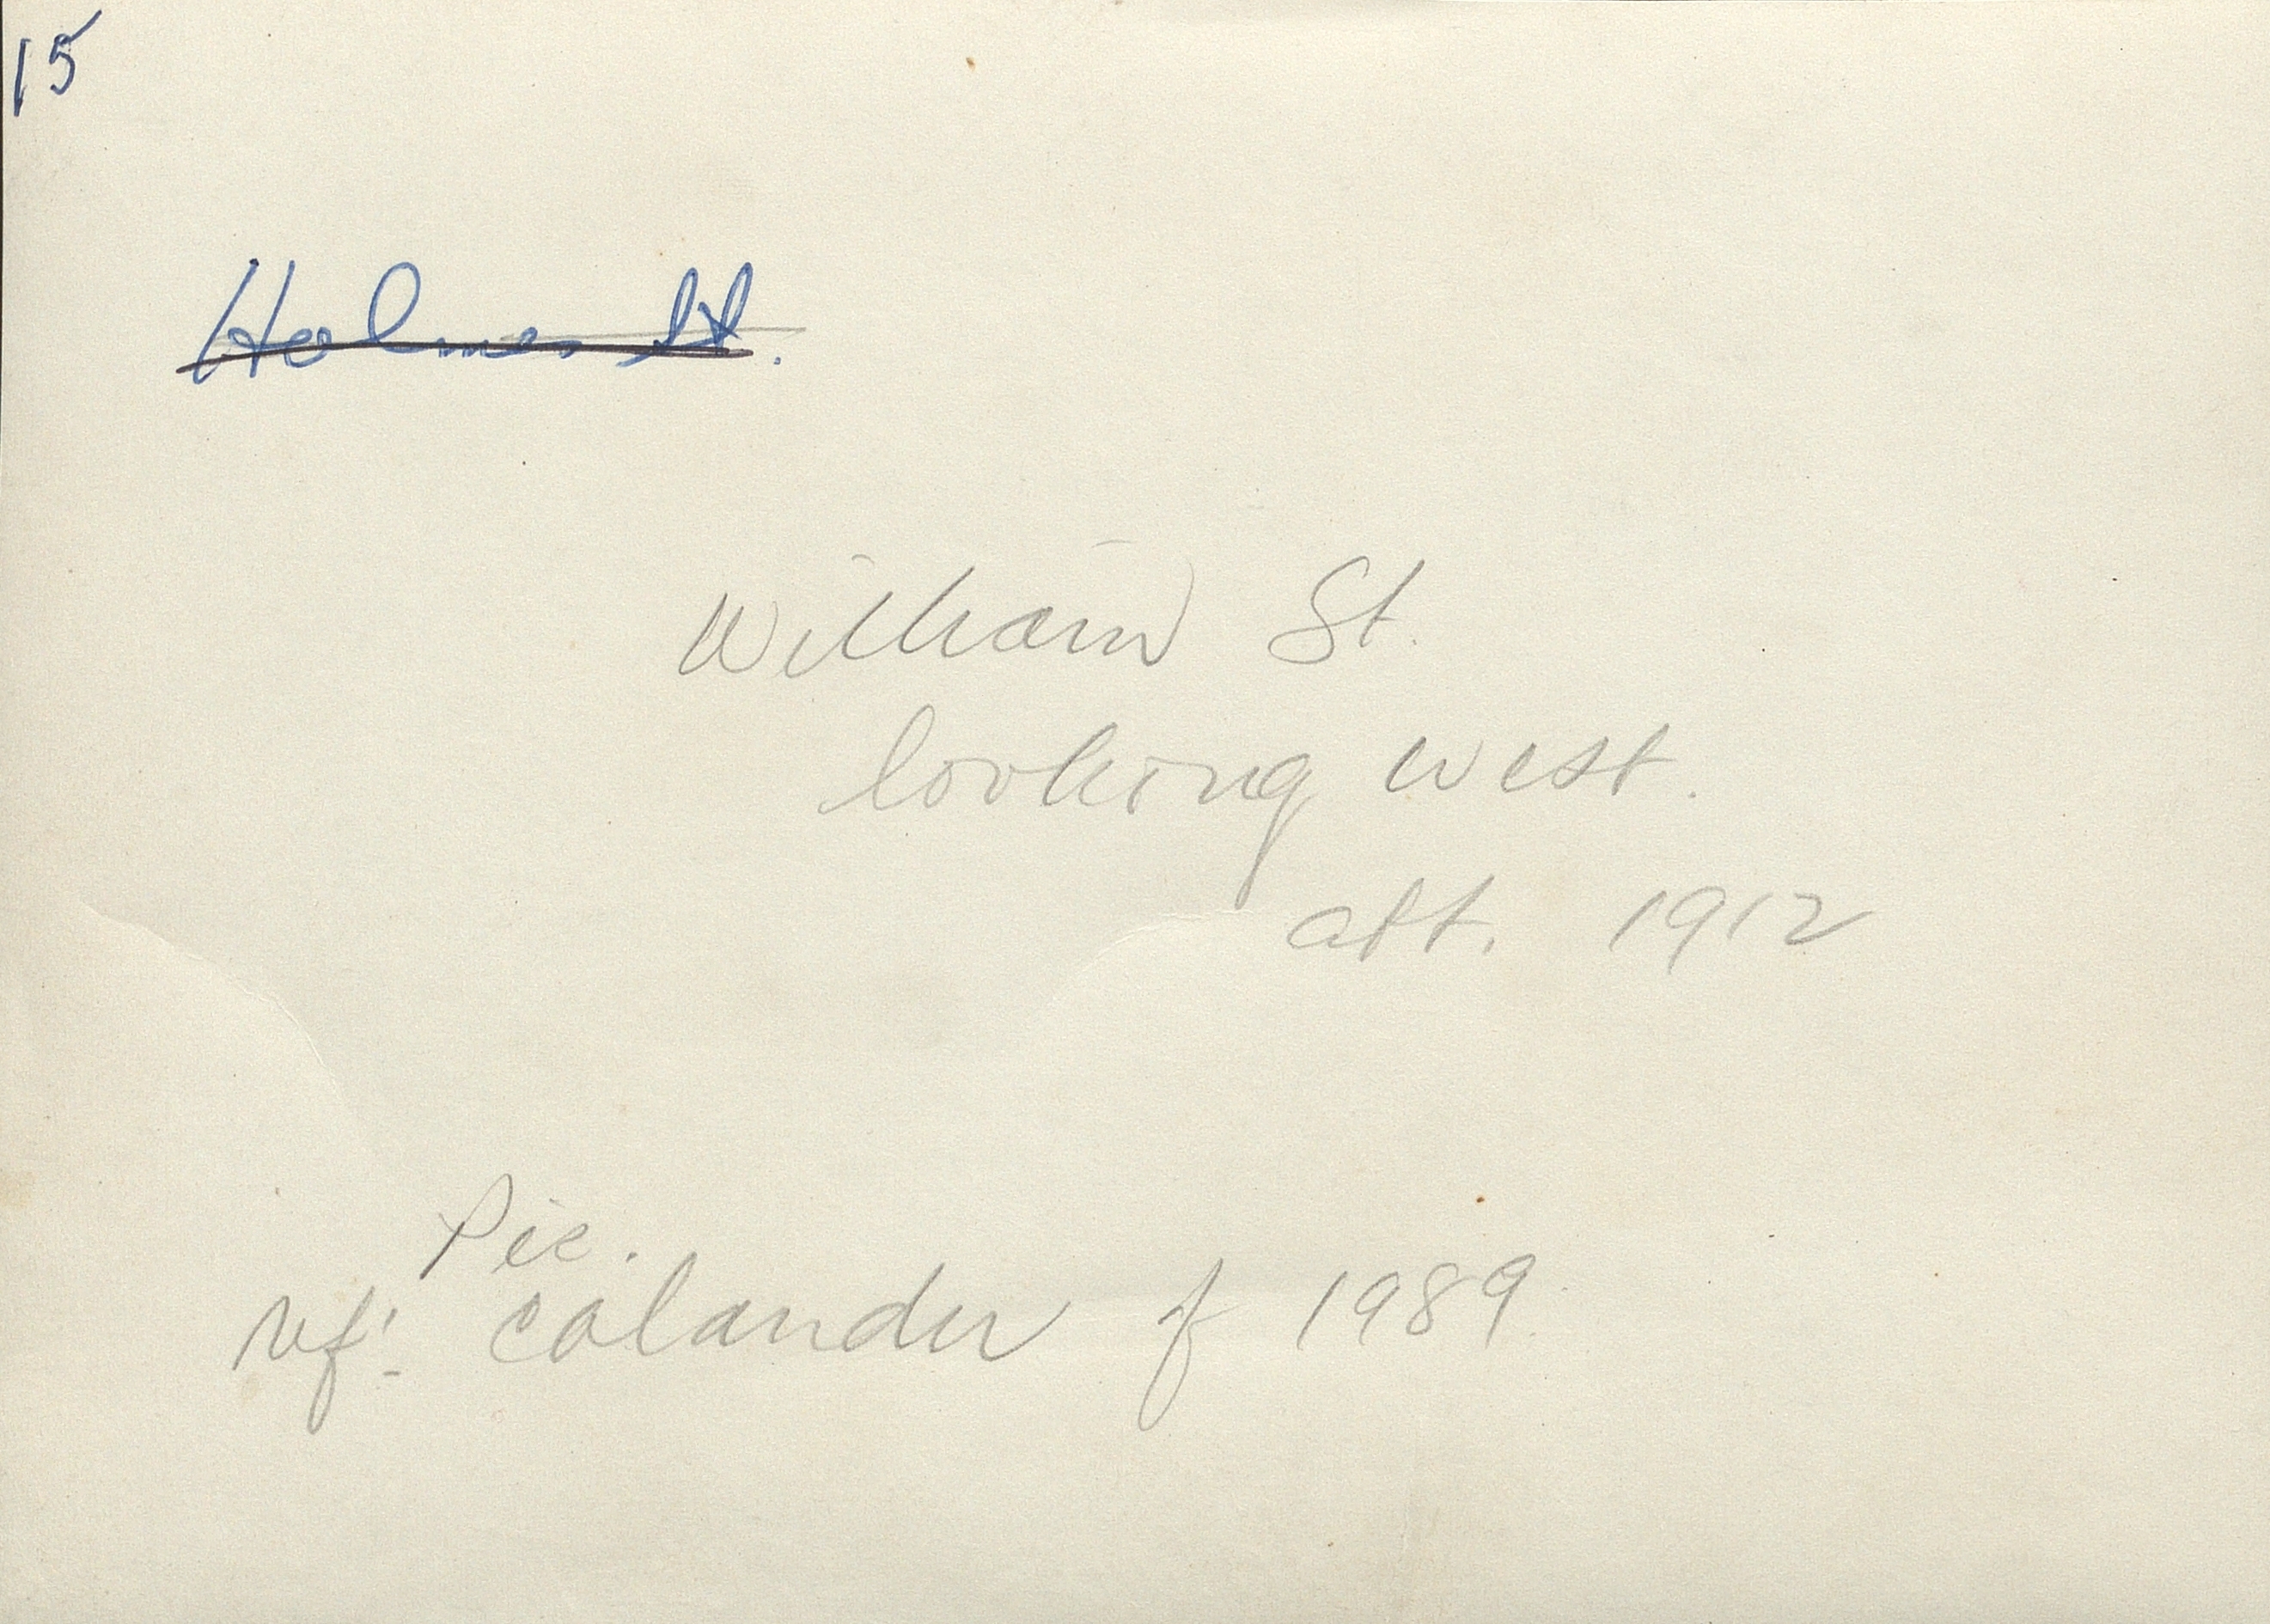 15
Holmes St.
William St.
looking west.
abt. 1912
Pic.
ref: calander of 1989